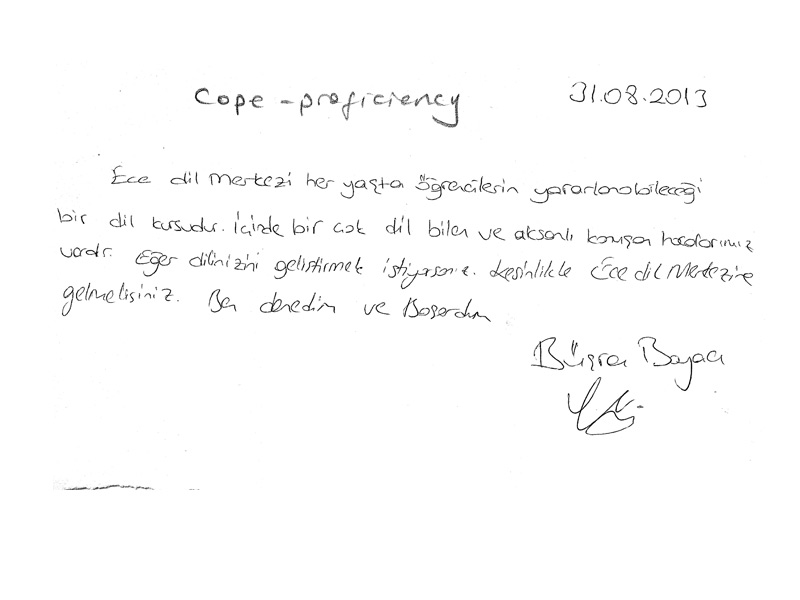 Cope - proficiency 31.08.2013
Ece dil Merkezi her yaşta öğrencilerin yararlanabileceği
bir dil kursudur. İçinde bir çok dil bilen ve aksanlı konuşan hocalarımız
vardır. Eğer dilinizini geliştirmek istiyasanız. Kesinlikle Ece dil Merkezine
gelmelisiniz. Ben denedim ve Başardım
Büşra Boyacı